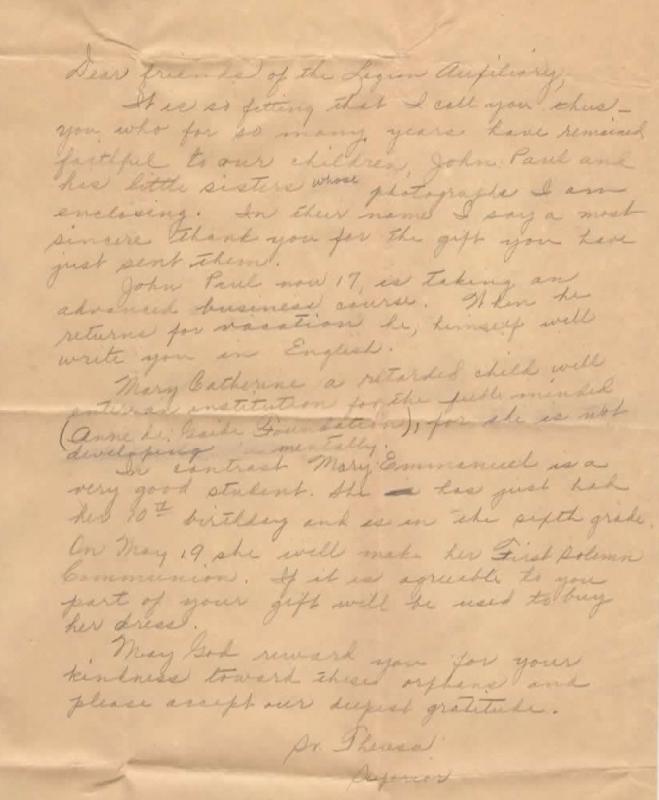 Dear friends of the Legion Auxiliary,
It is so fitting that I call you thus -
you who for so many years have remained
faithful to our children, John Paul and
his little sisters whose photographs I am
enclosing. In their name I say a most
sincere thank you for the gift you have
just sent them.
John Paul now 17, is taking an
advanced business course. When he
returns for vacation he, himself will
write you in English.
Mary Catherine a retarded child will
enter an institution for the feeble minded
(Anne de Foundation), for she is not
developing mentally.
In contrast Mary Emmanuel is a
very good student. She has just had
her 10th birthday and is in the sixth grade.
On May 19 she will make her First Solemn
Communion. If it is agreeable to you
part of your gift will be used to buy
her dress.
May God reward you for your
kindness toward these orphans and
please accept our deepest gratitude.
Sr. Theresa
Superior